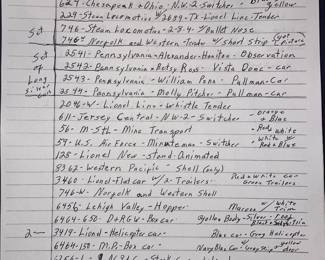 624 - Chesapeake & Ohio, N.W.2 - Switcher - yellow
229 - Steam Locomotive w/ Tx-Lionel Line-Tender
Set 746 - Steam Locomotive - 2-8-4 - Bullet Nose
746W Norfolk and Western - Tender w/ Short Strip
Set 2541 - Pennsylvania - Alexander-Hamilton - Observation
of 2542 - Pennsylvania - Betsy Ross - Vista Dome - car
Long 2543 - Pennsylvania - William Penn - Pullman - Car
2544 - Pennsylvania - Molly Pitcher - Pullman - car
2046-W - Lionel Lines - Whistle Tender
611 - Jersey Central - N.W-2 - Switcher - Orange + Blue
56 - M-StL - Mine Transport - Red White
59 - U.S. Air Force - Minuteman - Switcher - White w/ Red + Blue
128 - Lionel New-stand - Animated
8362 - Western Pacific - Shell (only)
3460 - Lionel - Flat car w/2 - Trailers - Red + white car Green Trailers
746-W - Norfolk and Western Shell
6456 - Lehigh Valley - Hopper - Maroon white
6464-650 - D+RGW - Box car - yellow Body - Silver - roof
2 - 3419 - Lionel - Helicopter car - Blue car - Gray Helicopter
6464-150 - M.P. - Box car - Navy Blue Car w/ Gray Strip yellow door